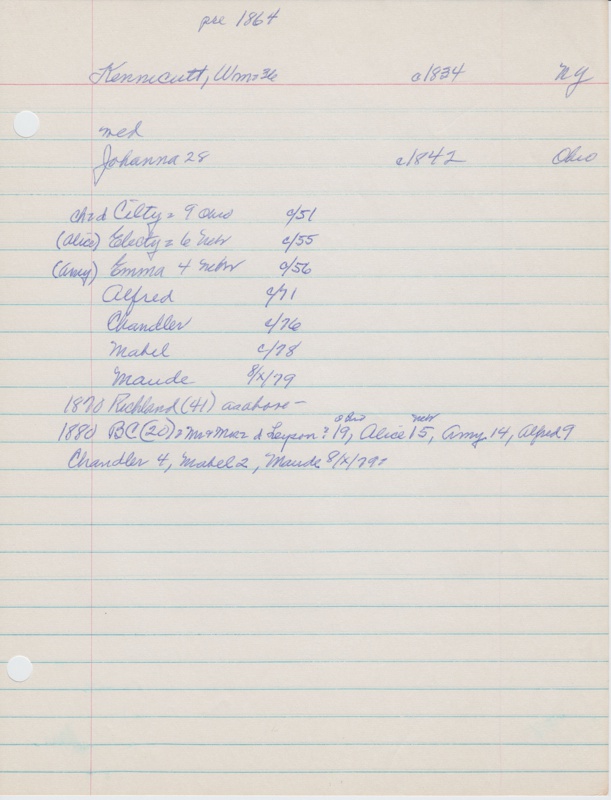 pre 1864
Kennicutt, Wm = 36 c1834 NY
med
Johanna 28 c1842 Ohio
ched Cilty = 9 Ohio c/51
(Alice) Electy = 6 Nebr c/55
(Amy) Emma 4 Nebr c/56
Alfred c/71
Chandler c/76
Mabel c/78
Maude 8/x/79
1870 Richland (41) as above -
1880 BC (20) = Mr & Mrs & 19, Ohio Alice 15, Nebr Amy 14, Alfred 9
Chandler 4, Mabel 2, Maude 8/x/79 =